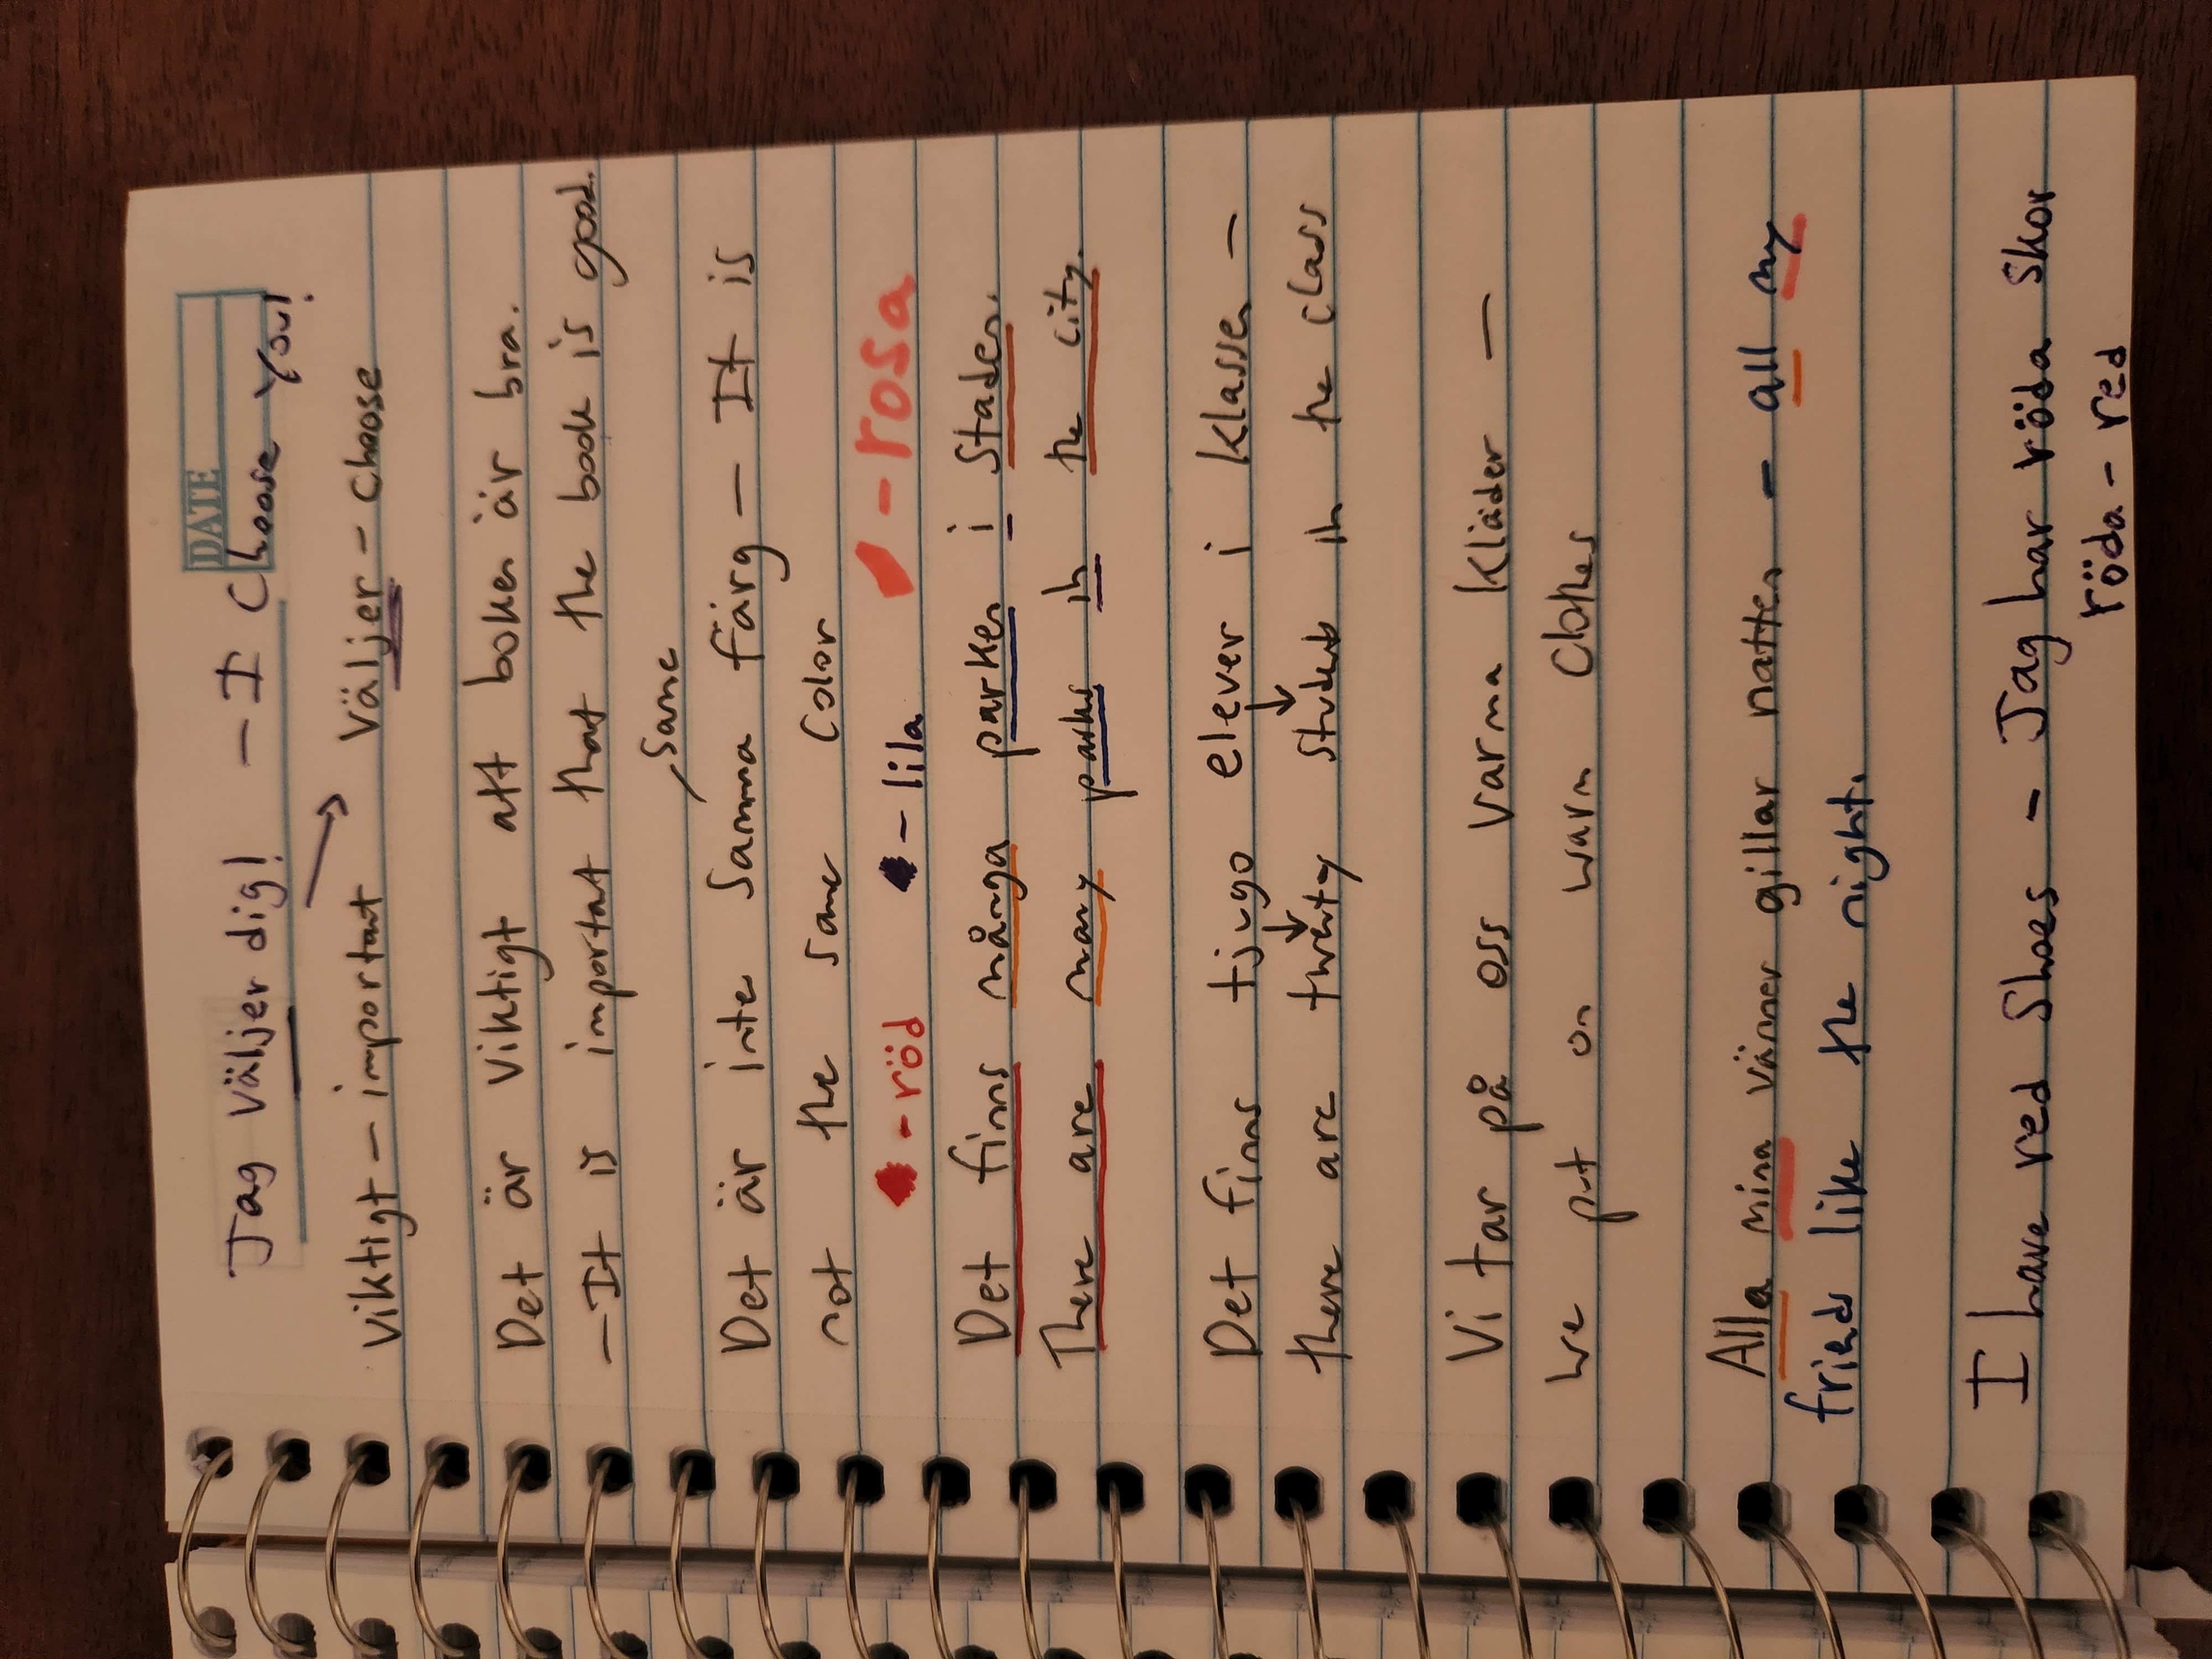 DATE
Jag väljer dig! - I Choose You!
viktigt - important Väljer - Choose
Det är viktigt att boken är bra.
- It is important that the book is good.
same
Det är inte samma färg - It is
not the same color
- röd - lila - rosa
Det finns många parker i staden.
There are many parks in the city.
Det finns tjugo elever i klassen -
there are twenty students in the class
Vi tar på oss varma kläder -
we put on warm clothes
Alla mina vänner gillar natten - all my
friends like the night.
I have red shoes - Jag har röda skor
röda - red